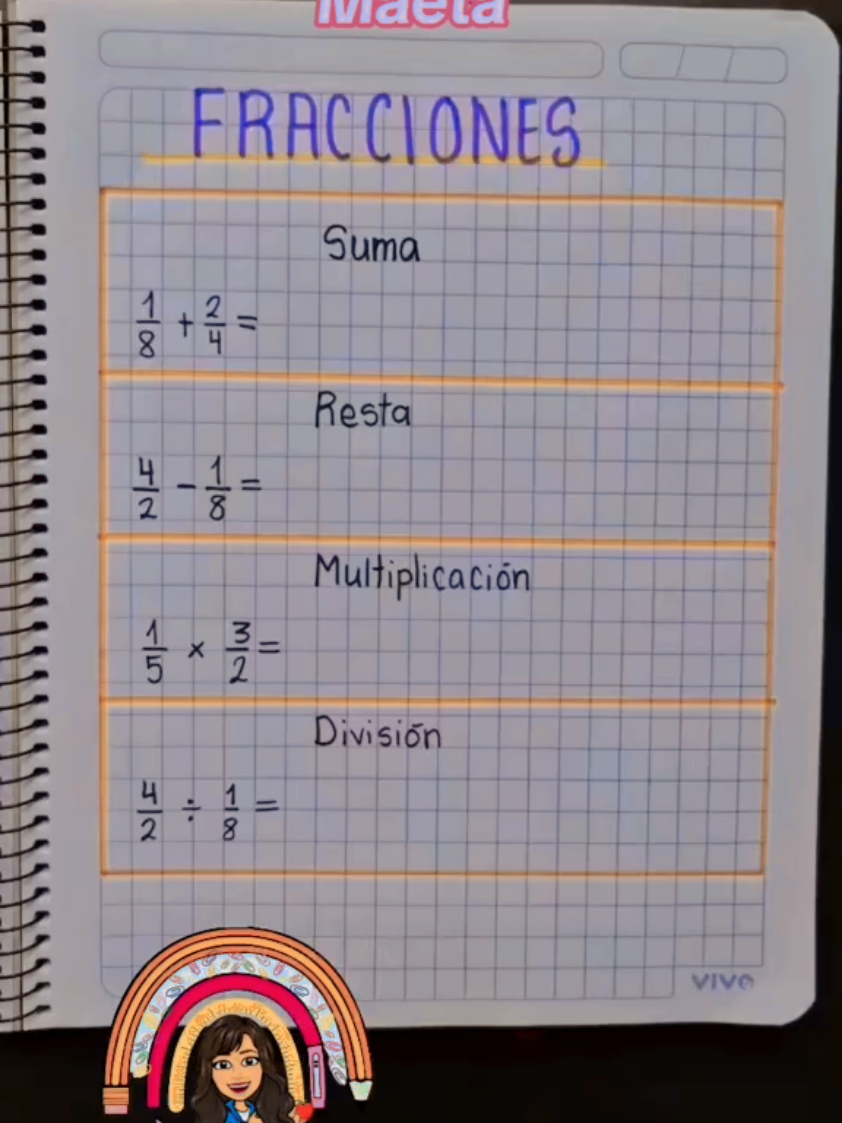 Maeta
FRACCIONES
Suma
1/8 + 2/4 =
Resta
4/2 - 1/8 =
Multiplicación
1/5 × 3/2 =
División
4/2 ÷ 1/8 =
vivo